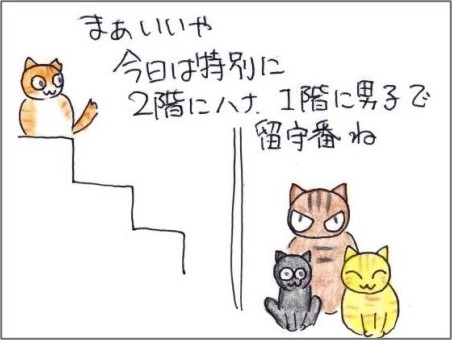 まぁいいや
今日は特別に
2階にハナ、1階に男子で
留守番ね